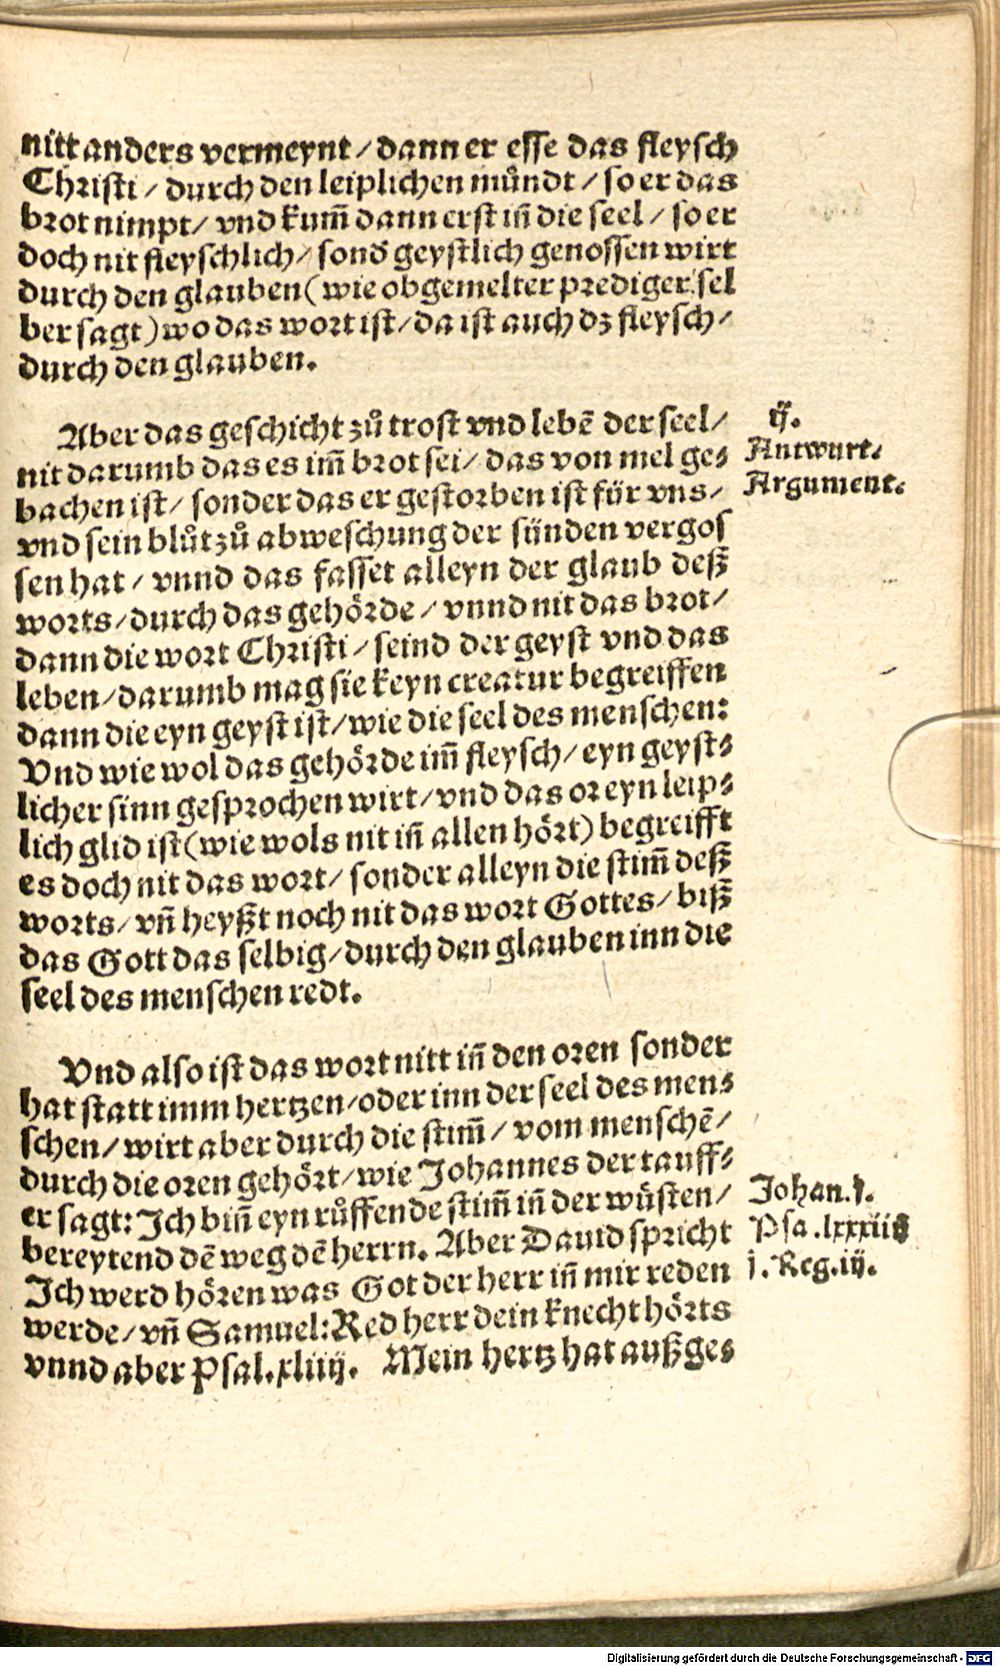 nitt anders vermeynt / dann er esse das fleysch
Christi / durch den leiplichen mündt / so er das
brot nimpt / vnd kum̃ dann erst iñ die seel / so er
doch nit fleyschlich / sonď geystlich genossen wirt
durch den glauben ( wie obgemelter prediger sel
ber sagt ) wo das wort ist / da ist auch dz fleysch /
durch den glauben.
Aber das geschicht zů trost vnd lebẽ der seel /
nit darumb das es im̃ brot sei / das von mel ge⸗
bachen ist / sonder das er gestorben ist für vns /
vnd sein blůt zů abweschung der sünden vergos
sen hat / vnnd das fasset alleyn der glaub deß
worts / durch das gehörde / vnnd nit das brot /
dann die wort Christi / seind der geyst vnd das
leben / darumb mag sie keyn creatur begreiffen
dann die eyn geyst ist / wie die seel des menschen:
Vnd wie wol das gehörde im̃ fleysch / eyn geyst⸗
licher sinn gesprochen wirt / vnd das or eyn leip⸗
lich glid ist ( wie wols nit iñ allen hört ) begreifft
es doch nit das wort / sonder alleyn die stim̃ deß
worts / vñ heyßt noch nit das wort Gottes / biß
das Gott das selbig / durch den glauben inn die
seel des menschen redt.
Vnd also ist das wort nitt iñ den oren sonder
hat statt imm hertzen / oder inn der seel des men⸗
schen / wirt aber durch die stim̃ / vom menschẽ /
durch die oren gehört / wie Johannes der tauff⸗
er sagt: Ich biñ eyn růffende stim̃ iñ der wüsten /
bereytend dẽ weg dẽ herrn. Aber Dauid spricht
Ich werd hören was Got der herr iñ mir reden
werde / vñ Samuel: Red herr dein knecht hörts
vnnd aber Psal. xliiij. Mein hertz hat außge⸗
ij.
Antwurt.
Argument.
Johan. j.
Psa. lxxxiiij
j. Reg. iij.
Digitalisierung gefördert durch die Deutsche Forschungsgemeinschaft - DFG